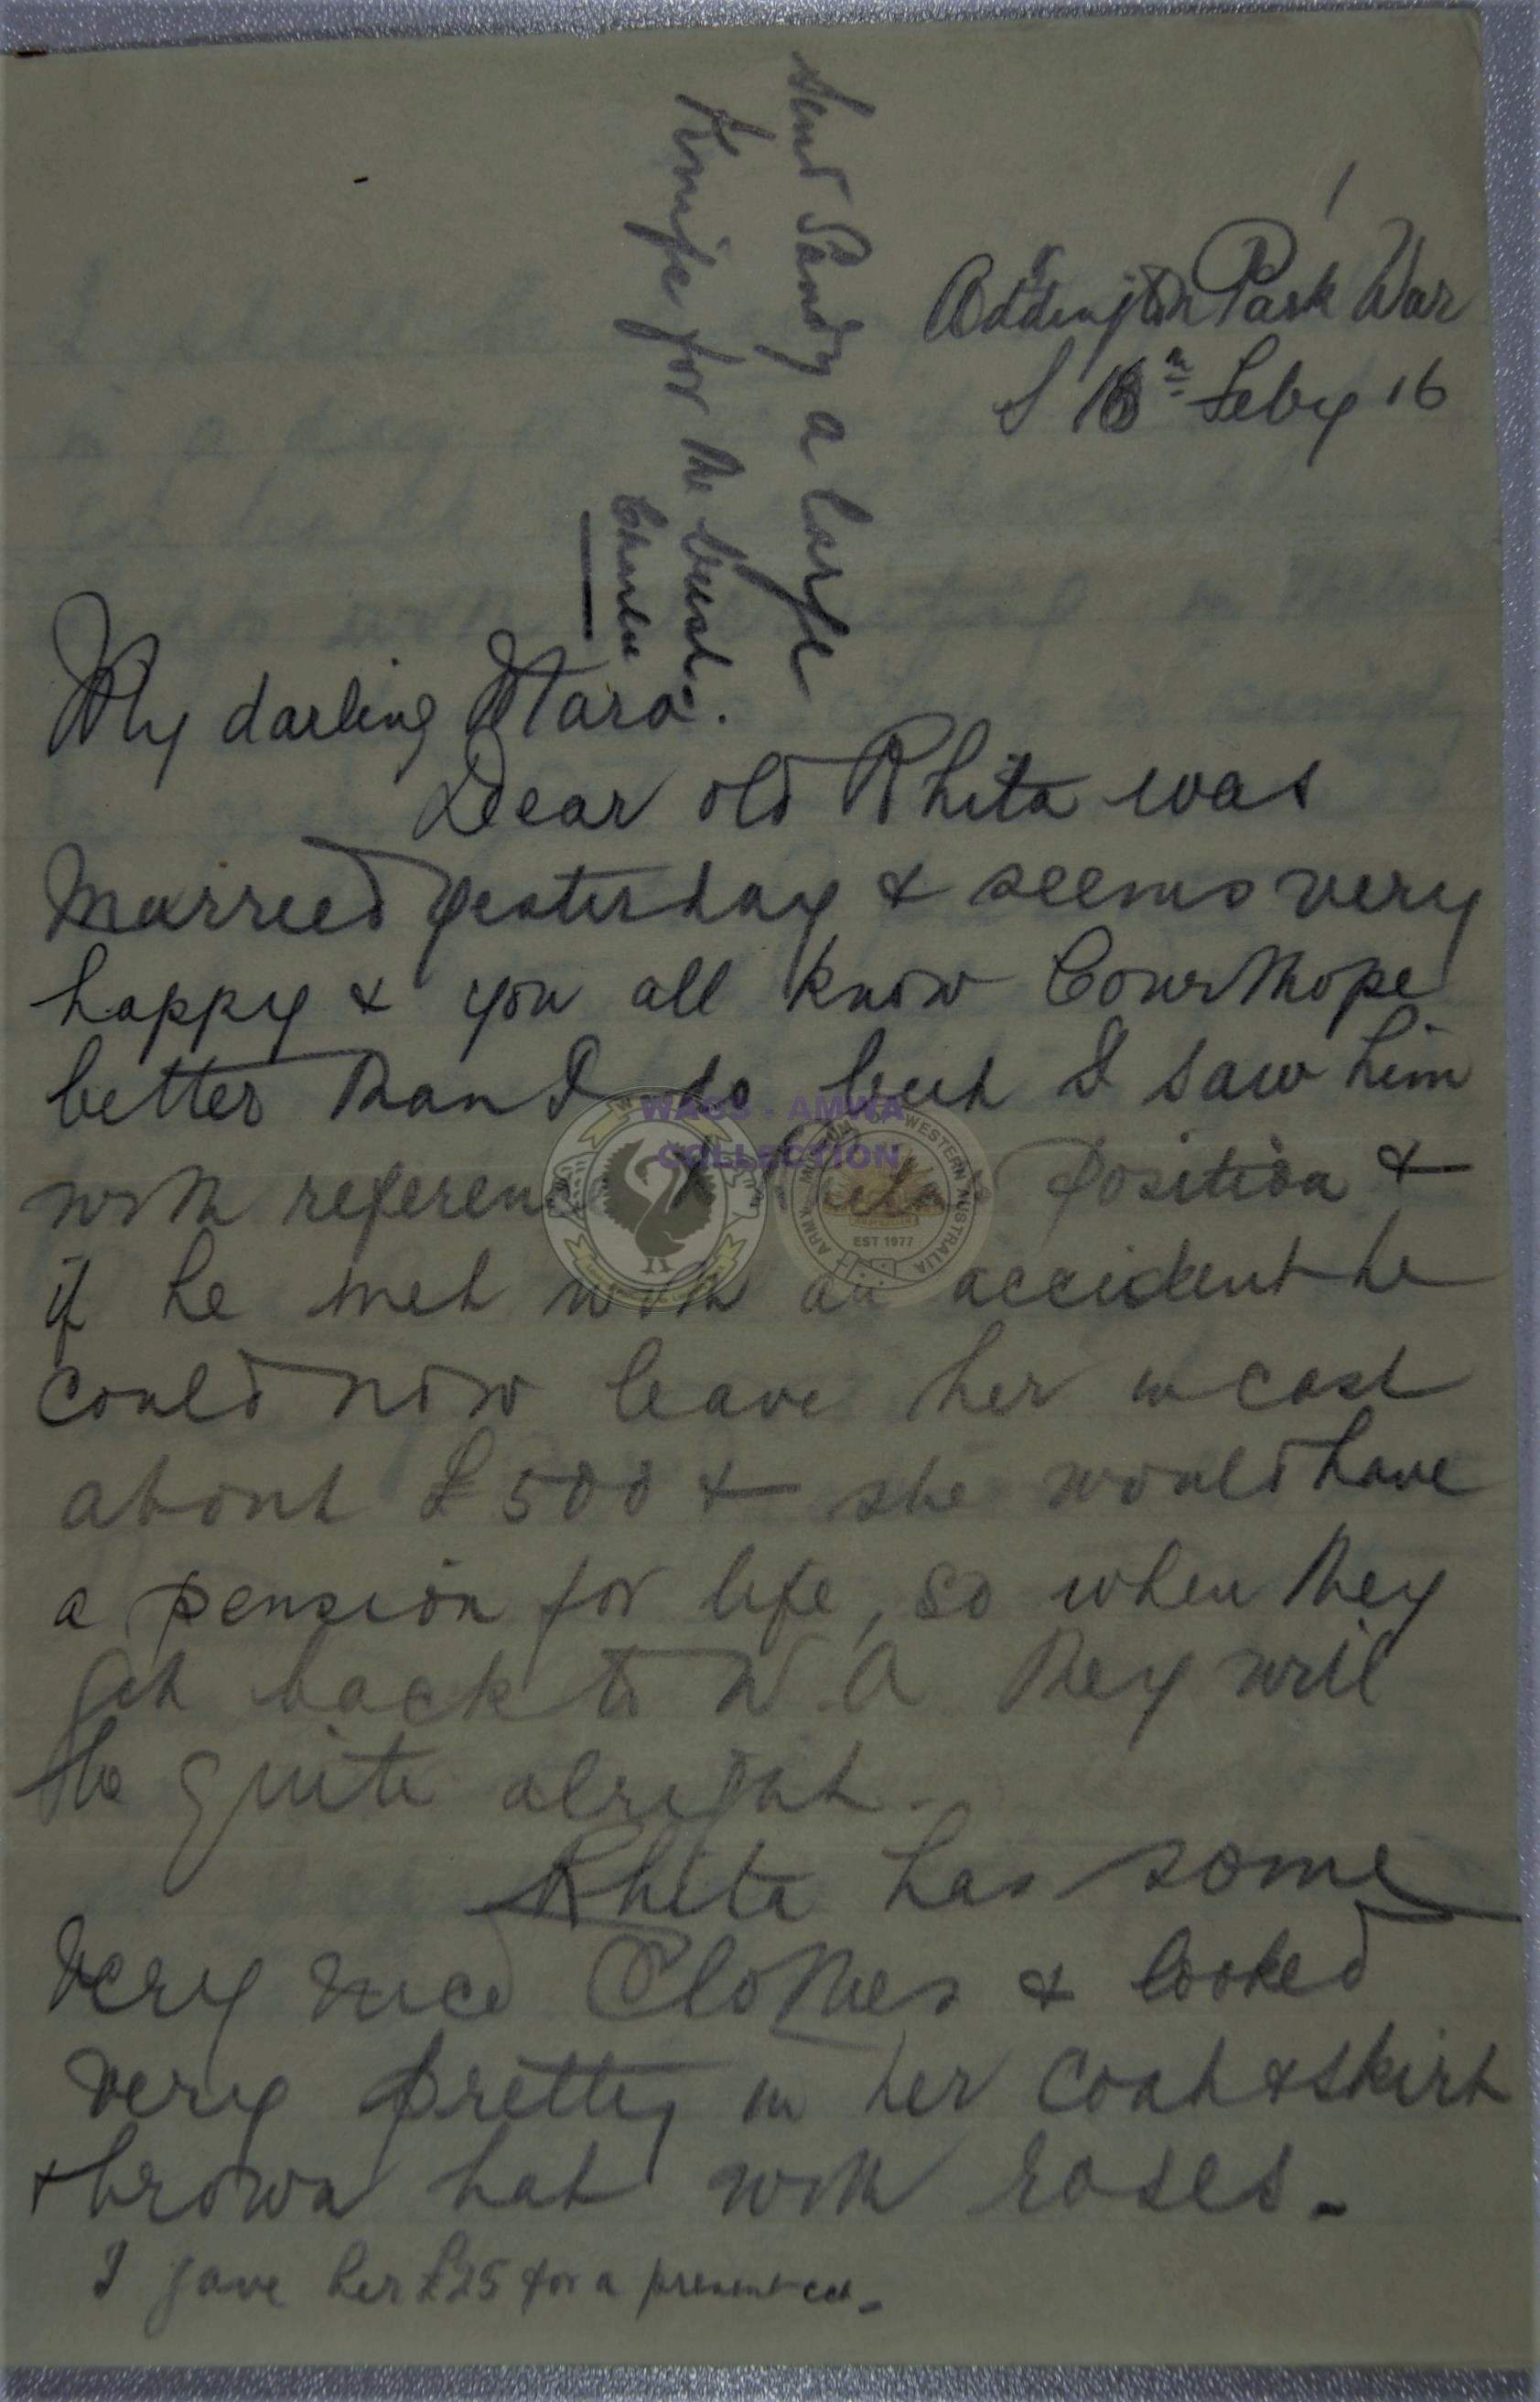 Addington Park War
16th Feby 16
Sent Sandy a large
Knife for the bush.
My darling
Dear old Rhita was
Married yesterday & seems very
happy & you all know Courthope
better than I do but I saw him
with reference to position &
if he met with an accident he
could now leave her in cash
about £500 & she would have
a pension for life, so when they
get back to W.A they will
be quite alright.
Rhita has some
very nice Clothes & looked
very pretty in her coat & skirt
& brown hat with roses.
I gave her £25 for a present
WAGS - AMWA
COLLECTION
ARMY MUSEUM OF WESTERN AUSTRALIA
EST 1977